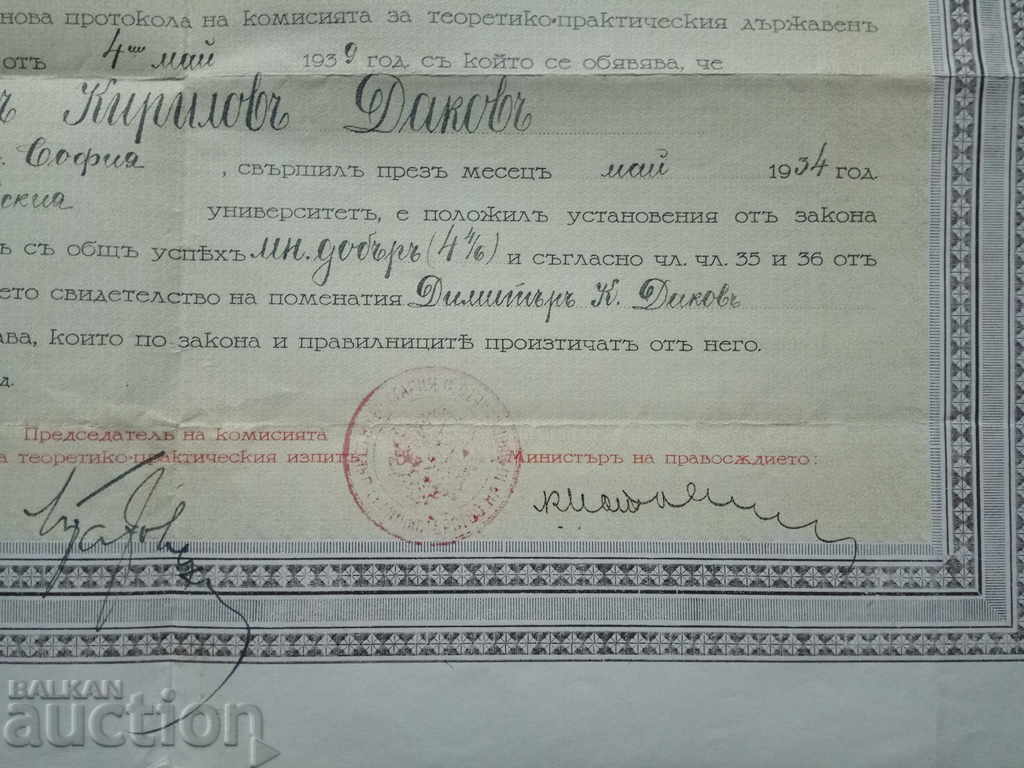 нова протокола на комисията за теоретико-практическия държавенъ
отъ 4ти май 1939 год. съ който се обявява, че
ъ Кириловъ Даковъ
София , свършилъ презъ месецъ май 1934 год.
ския университетъ, е положилъ установения отъ закона
ъ съ общъ успѣхъ мн. добъръ (4 4/6) и съгласно чл. чл. 35 и 36 отъ
ето свидетелство на поменатия Димитъръ К. Даковъ
ава, които по закона и правилницитѣ произтичатъ отъ него.
д.
Председатель на комисията
а теоретико-практическия изпитъ:
Министъръ на правосѫдието:
BALKAN
auction